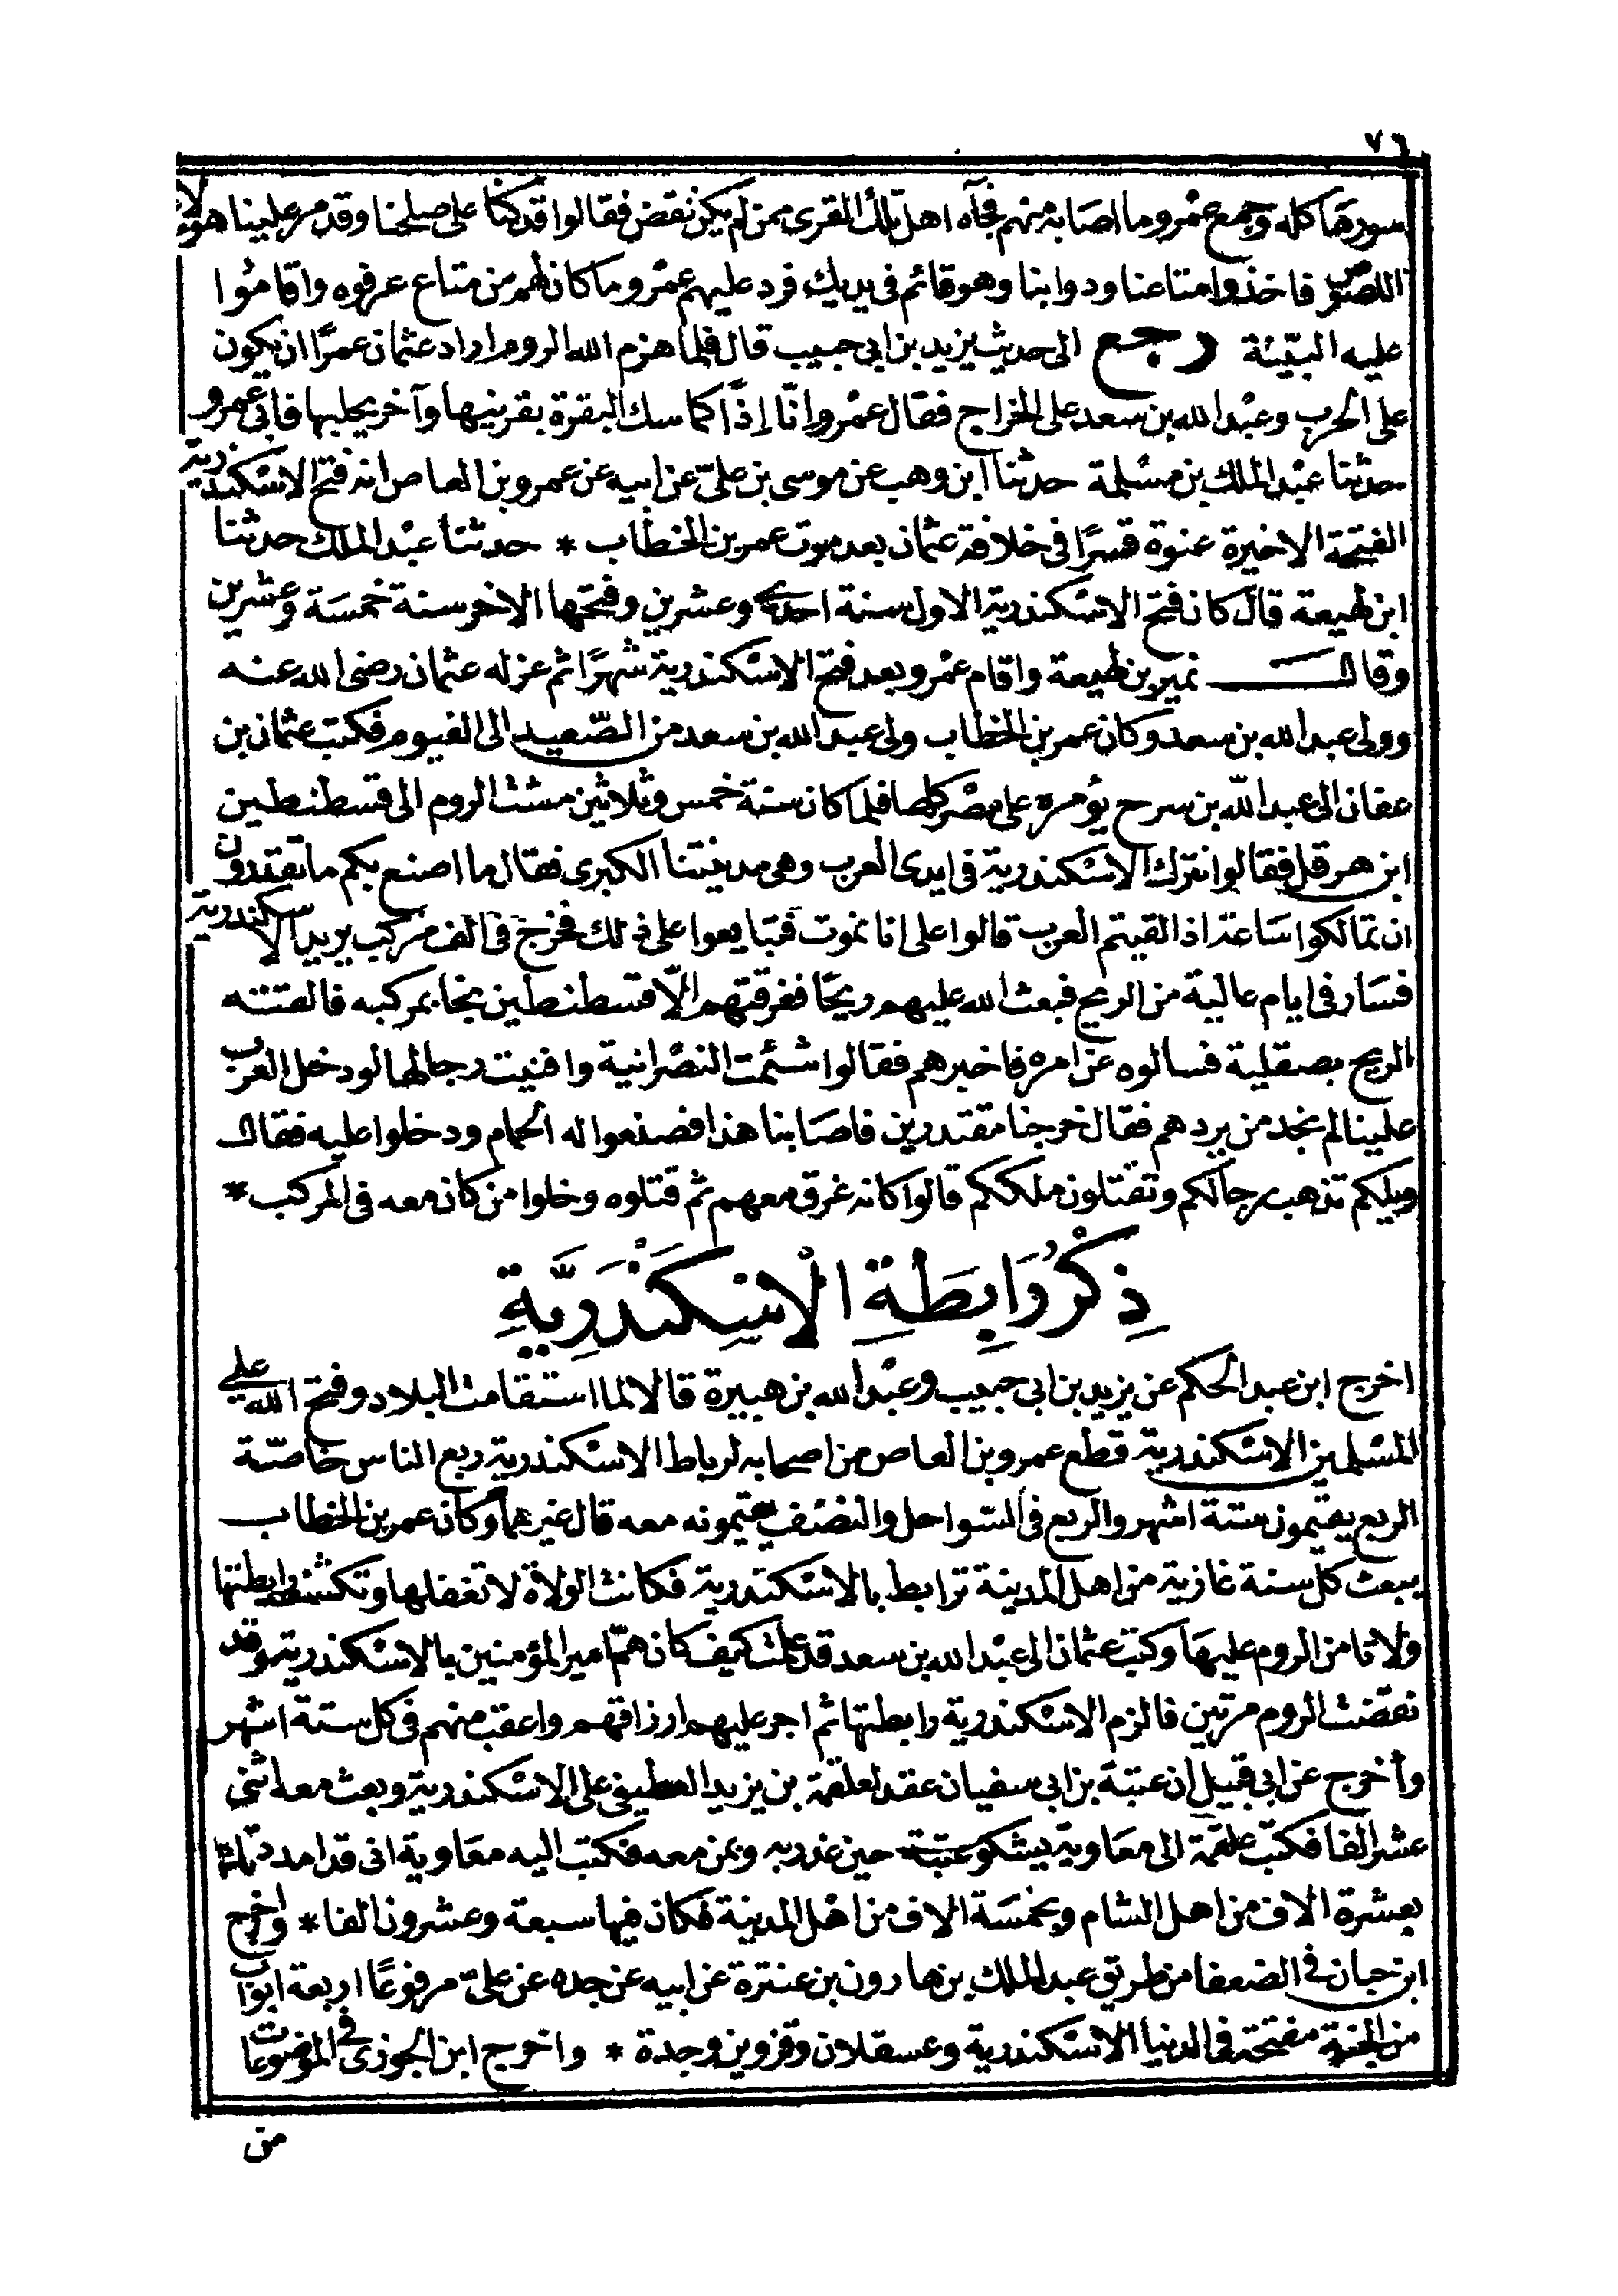 ٧٦
سورها كله وجمع عمرو ما اصابه منهم فجآه اهل تلك القرى ممن لم يكن نقض فقالوا قد كنا على صلحنا وقد مر علينا هولاء
اللصوص فاخذوا متاعنا ودوابنا وهو قائم فى يديك فرد عليهم عمرو ما كان لهم من متاع عرفوه واقاموا
عليه البيّنة رجع الى حديث يزيد بن ابى حبيب قال فلما هزم الله الروم اراد عثمان عمرًا ان يكون
على الحرب وعبد الله بن سعد على الخراج فقال عمرو انّا اذًا كماسك البقرة بقرنيها وآخر يحلبها فابى عمرو
حدثنا عبد الملك بن مسلمة حدثنا ابن وهب عن موسى بن علىّ عن ابيه عن عمرو بن العاص انه فتح الاسكندرية
الفتحة الاخيرة عنوة قسرًا فى خلافة عثمان بعد موت عمر بن الخطاب * حدثنا عبد الملك حدثنا
ابن لهيعة قال كان فتح الاسكندرية الاول سنة احدى وعشرين وفتحها الاخر سنة خمسة وعشرين
وقال نمير بن لهيعة واقام عمرو بعد فتح الاسكندرية شهرًا ثم عزله عثمان رضى الله عنه
وولى عبد الله بن سعد وكان عمر بن الخطاب ولى عبد الله بن سعد من الصّعيد الى الفيوم فكتب عثمان بن
عفان الى عبد الله بن سرح يؤمره على مصر كلها فلما كان سنة خمس وثلاثين مشت الروم الى قسطنطين
ابن هرقل فقالوا نترك الاسكندرية فى ايدى العرب وهى مدينتنا الكبرى فقال ما اصنع بكم ما تقتدرون
ان تمالكوا ساعة اذا لقيتم العرب قالوا على انا نموت فتبايعوا على ذلك فخرج فى الف مركب يريد الاسكندرية
فسار فى ايام عالية من الريح فبعث الله عليهم ريحًا فغرقتهم الاّ قسطنطين نجا بمركبه فالقتته
الريح بصقلية فسالوه عن امره فاخبرهم فقالوا شئمت النصرانية وافنيت رجالها لو دخل العرب
علينا لم نجد من يردهم فقال خرجنا مقتدرين فاصابنا هذا فصنعوا له الحمام ودخلوا عليه فقال
ويلكم تذهب رجالكم وتقتلون ملككم قالوا كانه غرق معهم ثم قتلوه وخلوا من كان معه فى المركب *
ذِكْرُ رَابِطَةِ الْاِسْكَنْدَرِيَّةِ
اخرج ابن عبد الحكم عن يزيد بن ابى حبيب وعبد الله بن هبيرة قالا لما استقامت البلاد وفتح الله على
المسلمين الاسكندرية قطع عمرو بن العاص من اصحابه لرباط الاسكندرية ربع الناس خاصّة
الربع يقيمون ستة اشهر والربع فى السّواحل والنصف مقيمونه معه قال غيرهما وكان عمر بن الخطاب
يبعث كل سنة غازية من اهل المدينة ترابط بالاسكندرية فكانت الولاة لا تغفلها وتكشف رابطتها
ولا تامن الروم عليها وكتب عثمان الى عبد الله بن سعد قد علمت كيف كان همّ امير المؤمنين بالاسكندرية وقد
نقضت الروم مرتين فالزم الاسكندرية رابطتها ثم اجر عليهم ارزاقهم واعقب منهم فى كل ستة اشهر
وأخرج عن ابى قبيل ان عتبة بن ابى سفيان عقد لعلقمة بن يزيد الغطيفى على الاسكندرية وبعث معه اثنى
عشر الفا فكتب علقمة الى معاوية يشكو عتبة حين غدر به وبمن معه فكتب اليه معاوية انى قد امددتك
بعشرة الاف من اهل الشام وبخمسة الاف من اهل المدينة فكان فيها سبعة وعشرون الفا * واخرج
ابن حبان فى الضعفا من طريق عبد الملك بن هارون بن عنترة عن ابيه عن جده عن علىّ مرفوعًا اربعة ابواب
من الجنة مفتحة فى الدنيا الاسكندرية وعسقلان وقزوين وجدة * واخرج ابن الجوزى فى الموضوعات
من